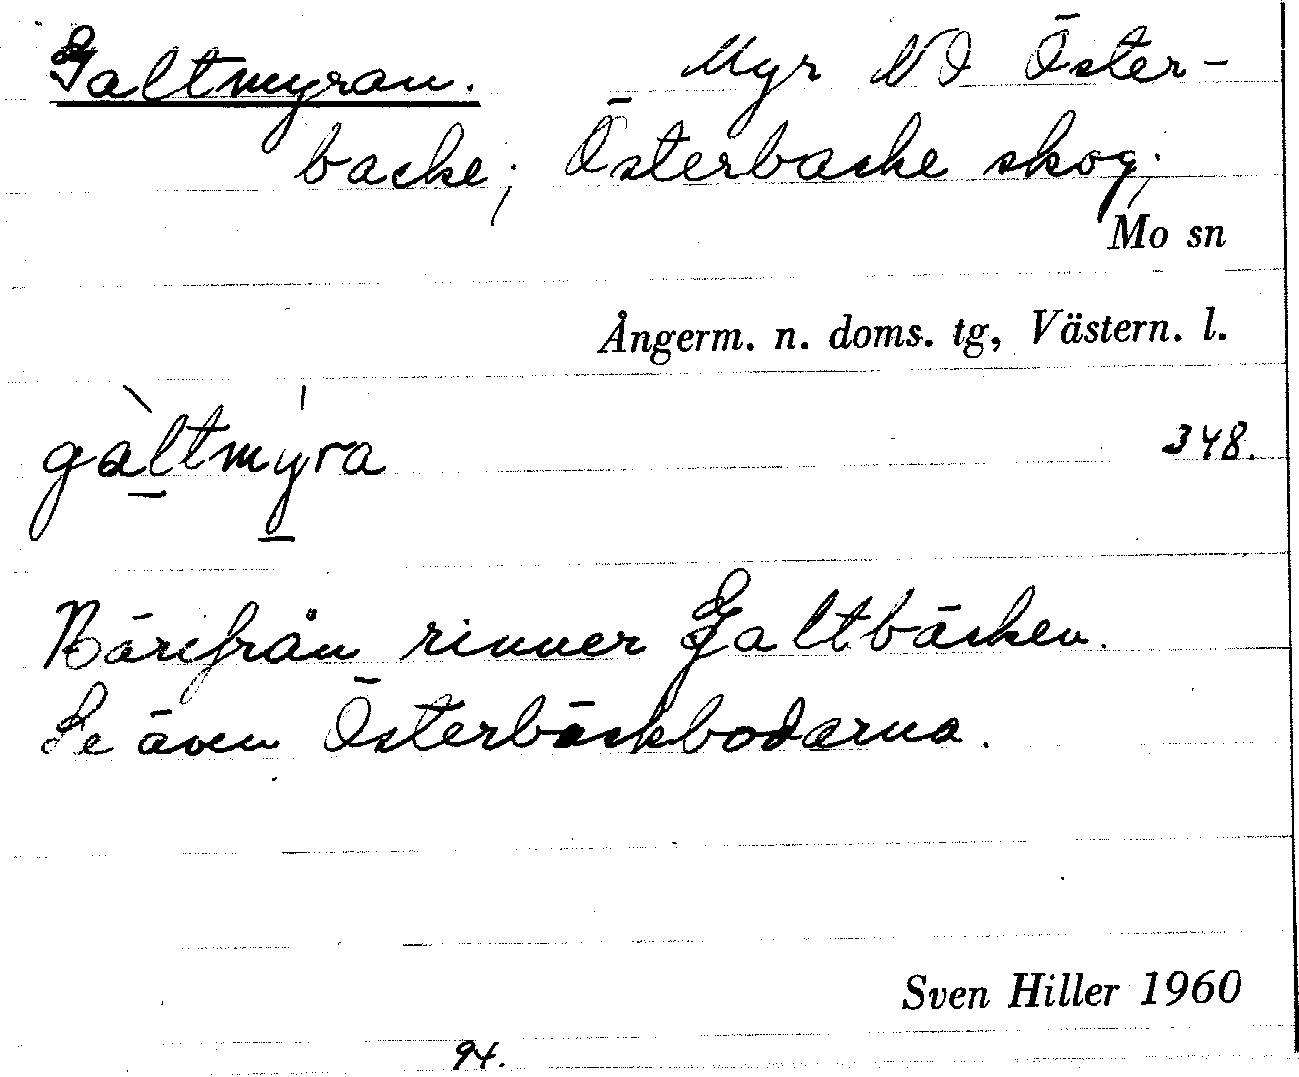 Galtmyran. Myr NO Öster-
backe; Österbacke skog;
Mo sn
Ångerm. n. doms. tg, Västern. l.
gàltmy̍ra 348.
Härifrån rinner Galtbäcken.
Se även Österbäckbodarna.
Sven Hiller 1960
94.